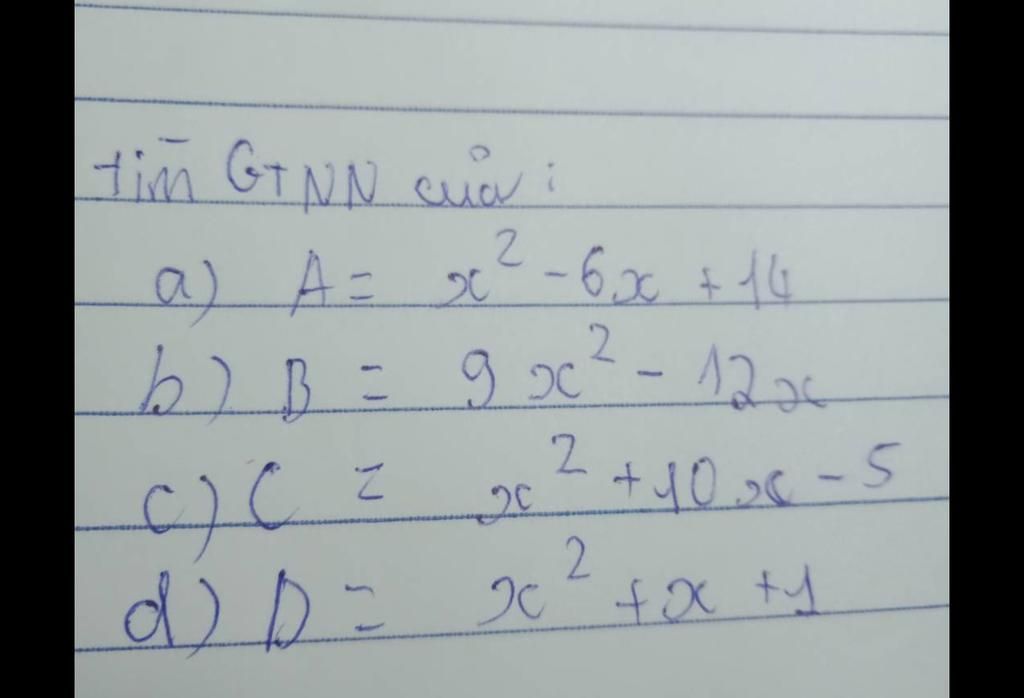 tìm GTNN của :
a) A = x² - 6x + 14
b) B = 9x² - 12x
c) C = x² + 10x - 5
d) D = x² + x + 1